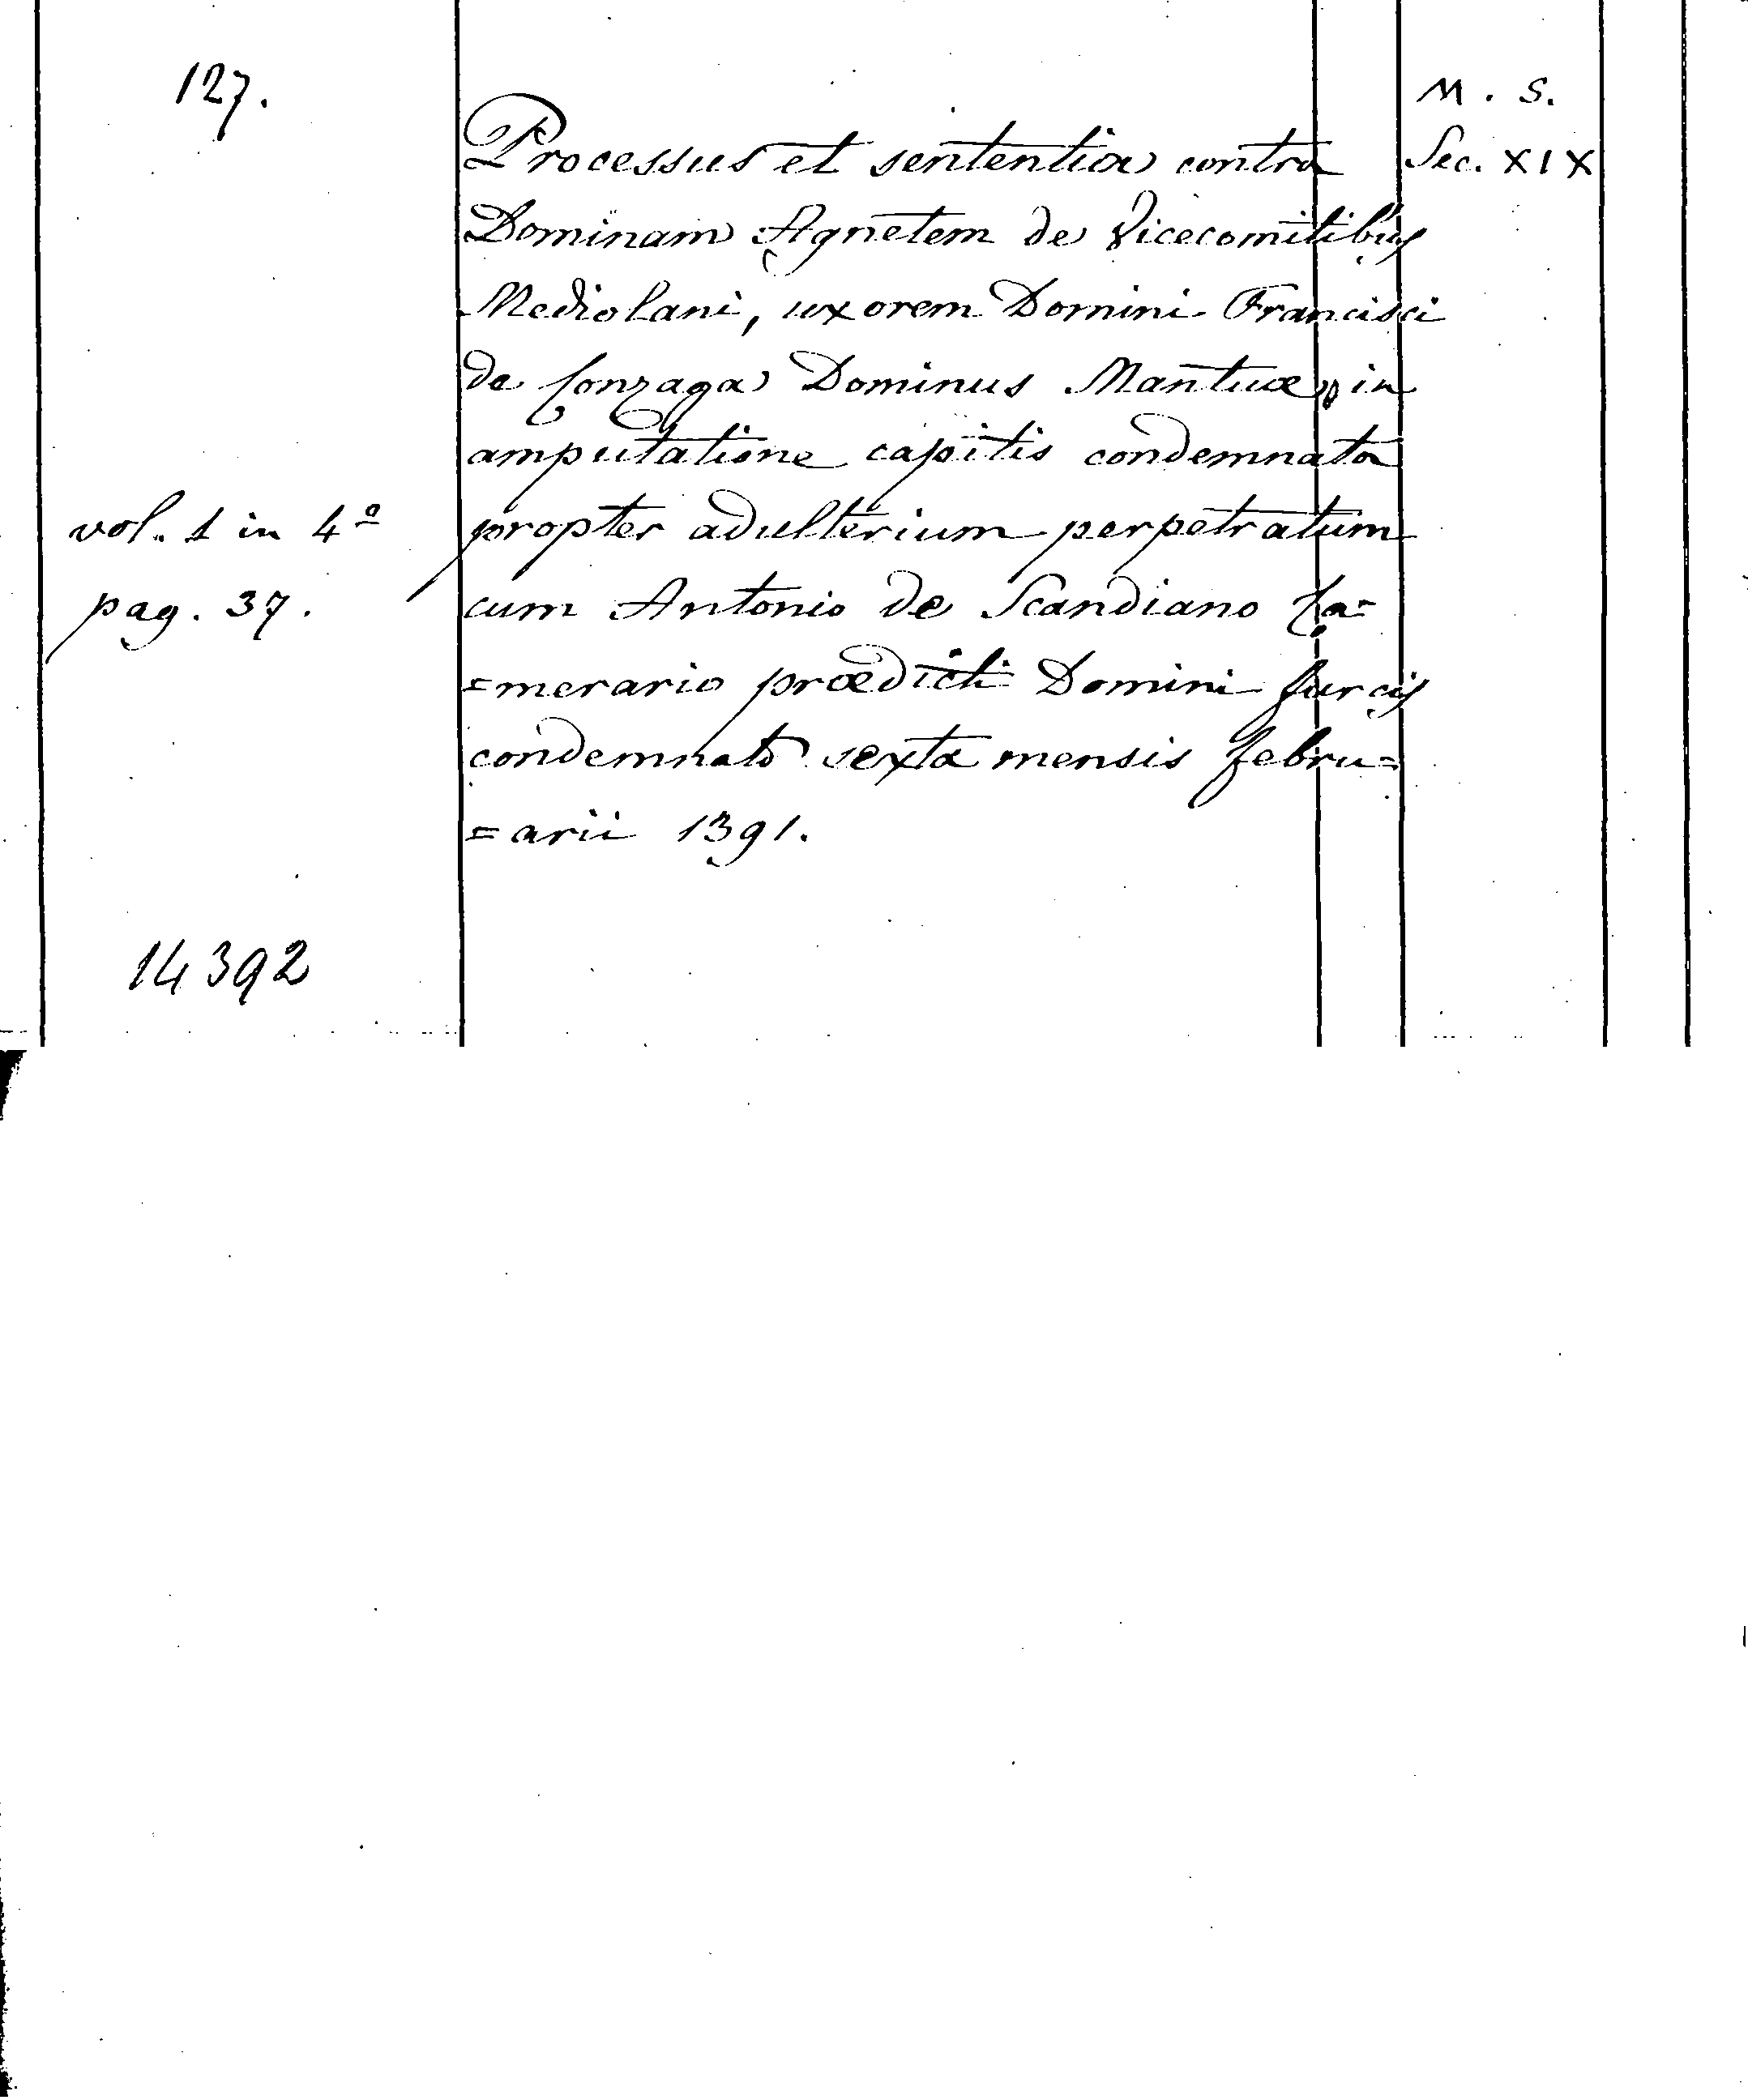 127.
Processus et sententia contra
Dominam Agnetem de Vicecomitibus
Mediolani, uxorem Domini Francisci
de Gonzaga Dominus Mantuæ, in
amputatione capitis condemnata
propter adulterium perpetratum
cum Antonio de Scandiano Ca=
=merario prædicti Domini furcis
condemnato sexta mensis febru=
=arii 1391.
M. S.
Sec. XIX
vol. 1 in 4º
pag. 37.
14392